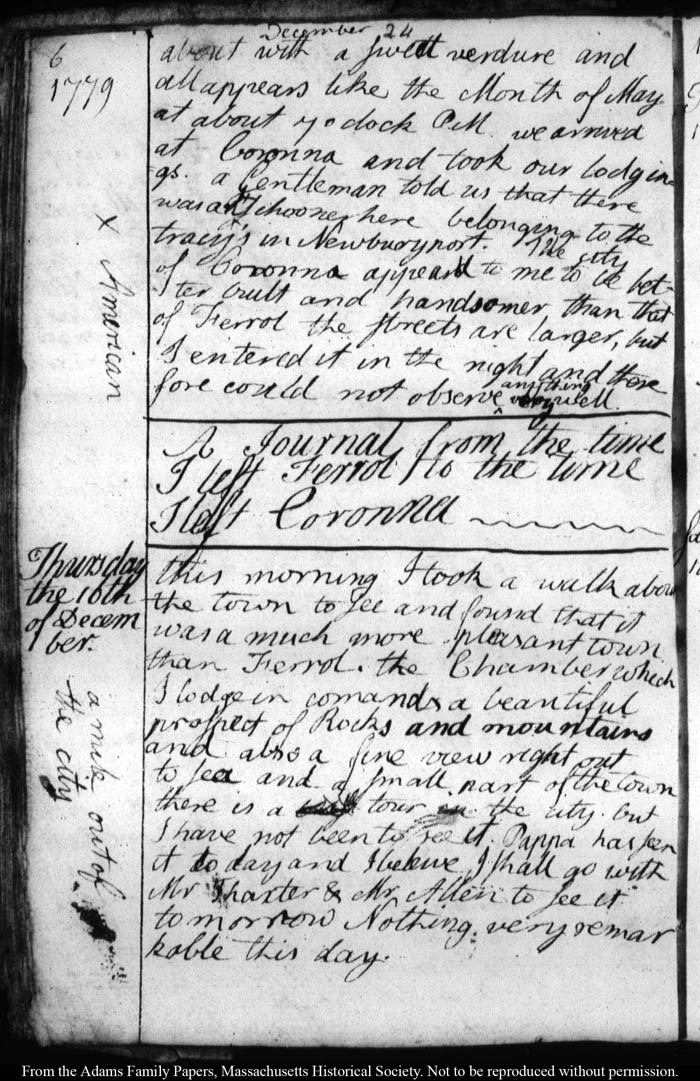 December 24
6
1779
about with a sweet verdure and
all appears like the Month of May
at about 7 o clock P.M. we arrived
at Coronna and took our lodgin
gs. a Gentleman told us that there
was a Schooner here belonging to the
tracy's in Newburyport The city
of Coronna appeard to me to be bet-
ter built and handsomer than that
of Ferrol the streets are larger, but
I entered it in the night and there
fore could not observe ^ anything very well.
x American
A Journal from the time
I left Ferrol to the time
I left Coronna
Thursday
the 16th
of Decem
ber.
this morning I took a walk about
the town to see and found that it
was a much more pleasant town
than Ferrol. the Chamber which
I lodge in comands a beautiful
prospect of Rocks and mountains
and also a fine view right out
to sea and a small part of the town
there is a tour the city. but
I have not been to see it. Pappa has seen
it to day and I beleive I shall go with
Mr Thaxter & Mr Allen to see it
tomorrow Nothing very remar
kable this day.
a mile out of
the city
From the Adams Family Papers, Massachusetts Historical Society. Not to be reproduced without permission.